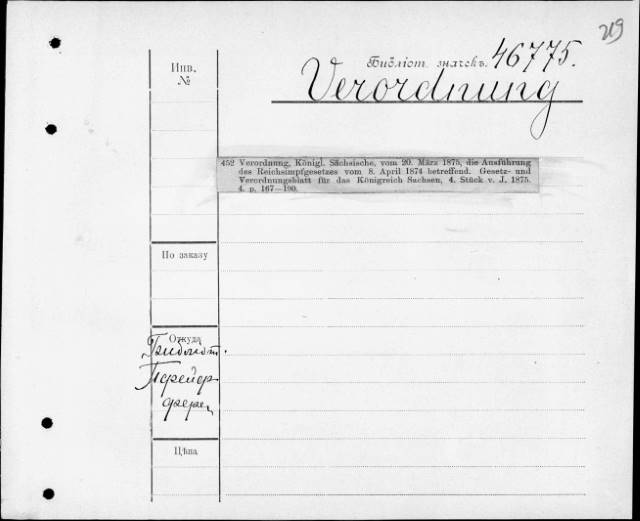 219
Библіот. значекъ. 46775.
Verordnung
Инв.
№
452 Verordnung, Königl. Sächsische, vom 20. März 1875, die Ausführung
des Reichsimpfgesetzes vom 8. April 1874 betreffend. Gesetz- und
Verordnungsblatt für das Königreich Sachsen, 4. Stück v. J. 1875.
4. p. 167—190.
По заказу
Откуда
Цѣна